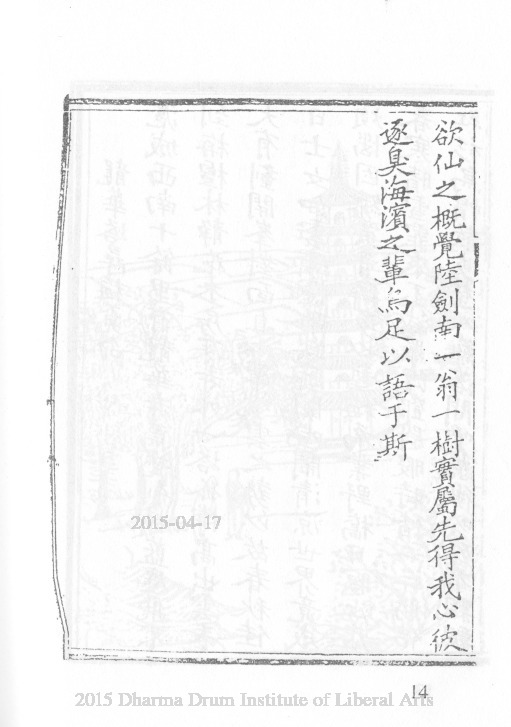 欲仙之概覺陸劍南一翁一樹實屬先得我心彼
逐臭海濱之輩烏足以語于斯
2015-04-17
14
2015 Dharma Drum Institute of Liberal Arts